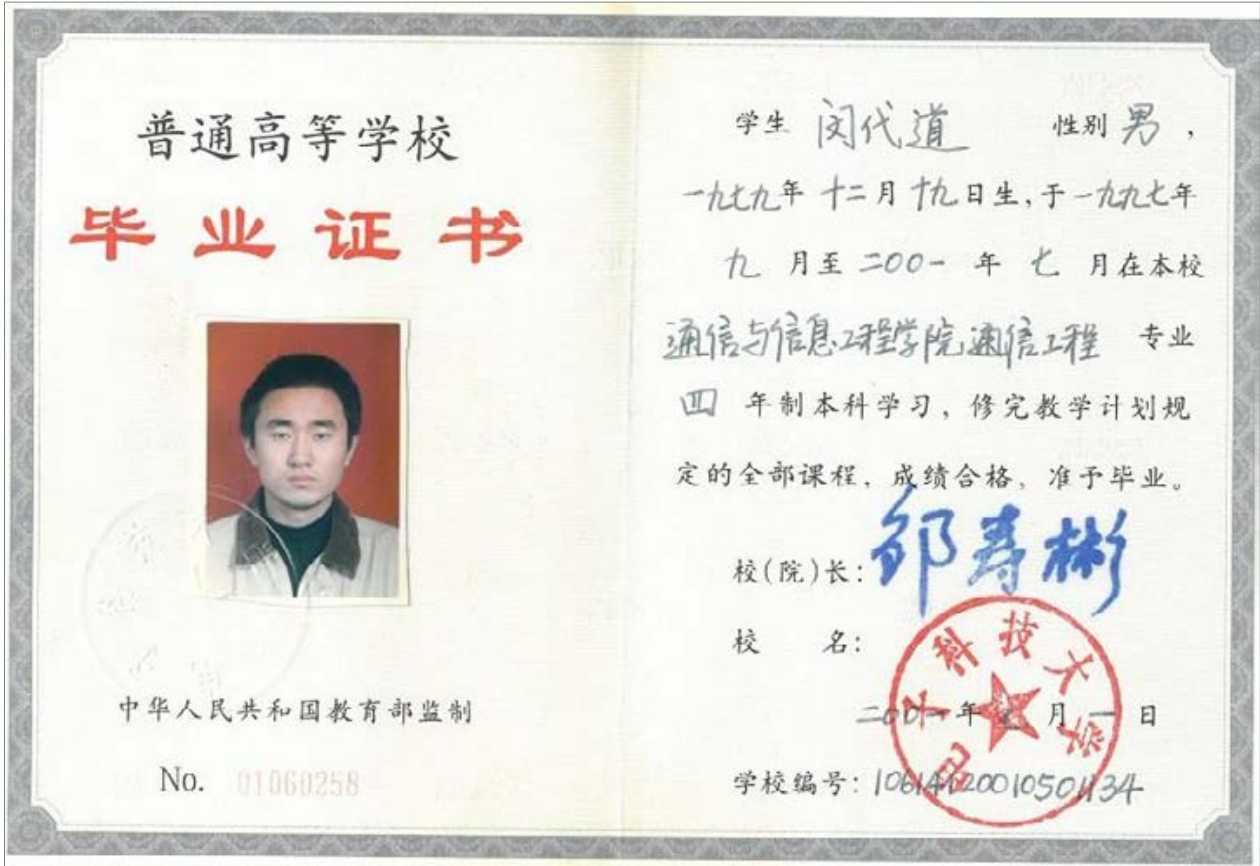 普通高等学校
毕业证书
中华人民共和国教育部监制
No. 01060258
学生 闵代道 性别 男，
一九七九年 十二月 十九日生，于一九九七年
九 月至 二00一 年 七 月在本校
通信与信息工程学院通信工程 专业
四 年制本科学习，修完教学计划规
定的全部课程，成绩合格，准予毕业。
校(院)长：邹寿彬
校 名：
电子科技大学
二00一年 月 一 日
学校编号：10614120010501134